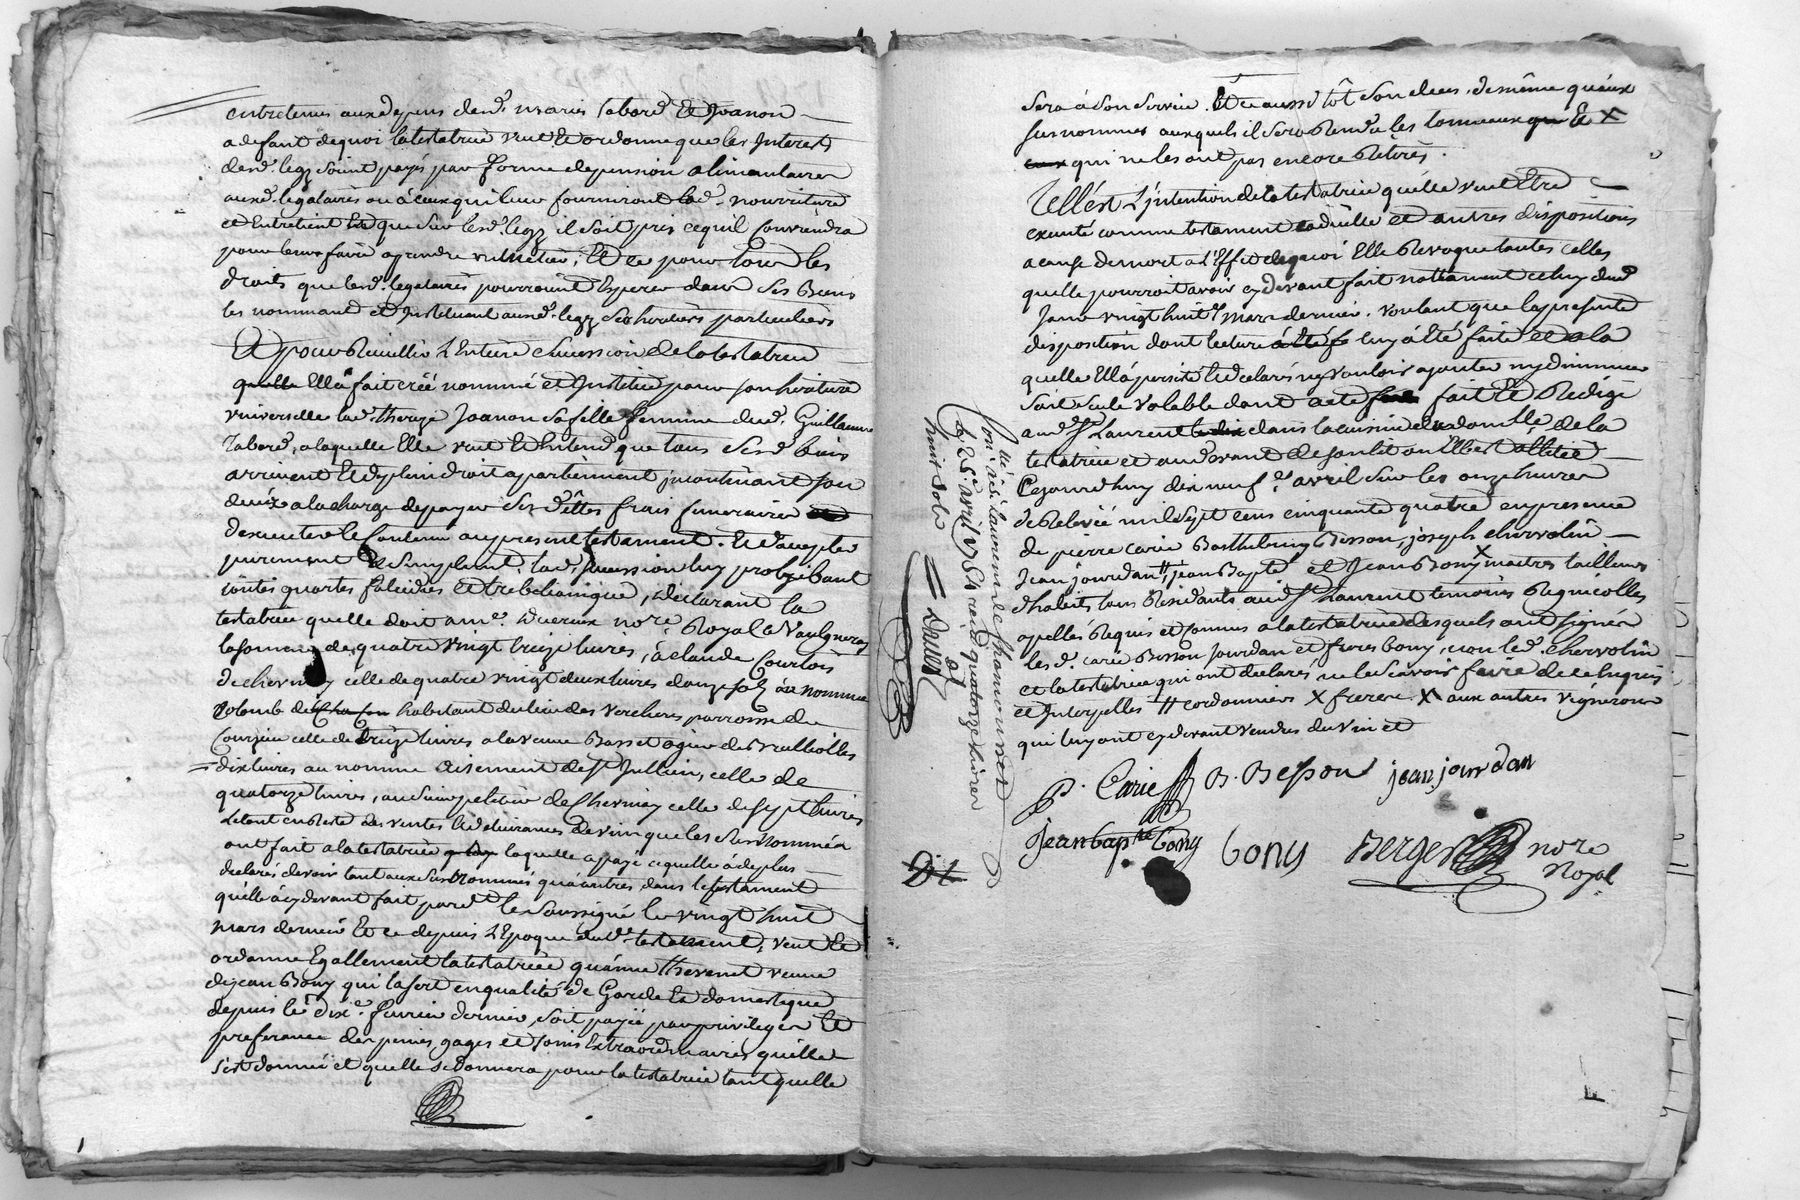 entretenus aux depens desd. maries tabard Et Joanon
a defaut de quoi la testatrice veut Et ordonne que les Interests
desd. legz soient payés par forme de pension alimentaires
auxd. legataires ou à ceux qui leur fourniront lad. nourriture
et Entretient Et que sur lesd. legz il soit pris ce quil Conviendra
pour leurs faire aprendre un metier, Et ce pour tous les
droits que lesd. legataires pourroient Esperer dans ses Biens
les nommant et Instituant auxd. legz ses heritiers particuliers
Et pour Recuillir L'Entiere succession de la testatrice
quelle Ella fait créé nommé et Institué pour son heritiere
universelle lad. thereze Joanon sa fille femme dud. Guillaume
Tabard, a laquelle Elle veut Et Entend que tous sesd. biens
arrivent Et de plein droit apartiennent incontinant son
decéz a la charge de payer ses d'êttes frais funeraires
d'executer le Contenu au present testament. Et d'accepter
purement Et Simplement lad. succession luy prohibant
toutes quartes falcidies et trebelianique, declarant la
testatrice quelle doit a me. Ducreux nore. Royal a Vaulgneray
la somme de quatre vingt treize livres, à claude Courbois
de chevinay celle de quatre vingt deux livres douze solz au nommé
Colomb de habitant du lieu des Vercheres parroisse de
Courzieu celle de treize livres a la veuve Basset ogier des Brulliolles
dix livres au nomme Disement de St. Jullien, celle de
quatorze livres, au Sr. impeletier de Chevinay celle de sept livres
Letout en Reste des ventes Et delivrances de vin que les susnommés
ont fait a la testatrice laquelle a payé ce quelle a de plus
declarés devoir tant aux susnommés qu'a autres dans le testament
qu'elle à cy devant fait pard. le soussigné le vingt huit
mars dernier Et ce depuis L'Epoque dud. testament, veut Et
ordonne Egallement la testatrice qu'anne thevenet veuve
de jean Bony qui la sert en qualité de Garde Et domestique
depuis le dix e. fevrier dernier, soit payée par privilege Et
preferance des peines, gages et soins Extraordinaires qu'elle
s'est donnée et quelle se donnera pour la testatrice tant quelle
sera à son service. Et ce aussi tôt son deces. de même qu'aux
susnommes auxquels il sera Rendu les tonneaux Et X
qui ne les ont pas encore Retirés.
Tell'est L'jntention de la testatrice qu'elle veut Etre
executé comme testament codicille et autres dispositions
a cause de mort a L'Effet de quoi Elle Revoque toutes celles
quelle pourroit avoir cy devant fait nottament celuy dud.
Jour vingt huit mars dernier. voulant que la presente
disposition dont lecture luy a Eté faite et a la
quelle Ell'a persisté Et declaré ny vouloir ajouter ny diminuer
soit seule valable dont acte fait Et Redigé
aud. St. Laurent dans la cuisine du domicille de la
testatrice et au devant de son lit ou Ell'est allitée
Cejourdhuy dix neuf e. avril sur les onze heures
de Relevée mil sept cens cinquante quatre en presence
de pierre Carie Barthelemy Besson, joseph chervolin
Jean jourdan #, jean Bapte et Jean Bony X maitres tailleurs
d'habits tous Residants aud. St. Laurent temoins Regnicolles
apellés Requis et Connus a la testatrice desquels ont signé
lesd. Carie Besson Jourdan et freres bony, non led. chervolin
et la testatrice qui ont declarés ne le scavoir faire de ce Enquis
et Interpellés # cordonniers X freres X aux autres vignerons
qui luy ont cy devant vendus du vin et
P. Carie B. Besson jean jourdan
jean bap te bony bony Berger nore
Royal
Conlle. à St. Laurent de Chamousset
le 25e. avril 1754 reçu quatorze livres
huit sols